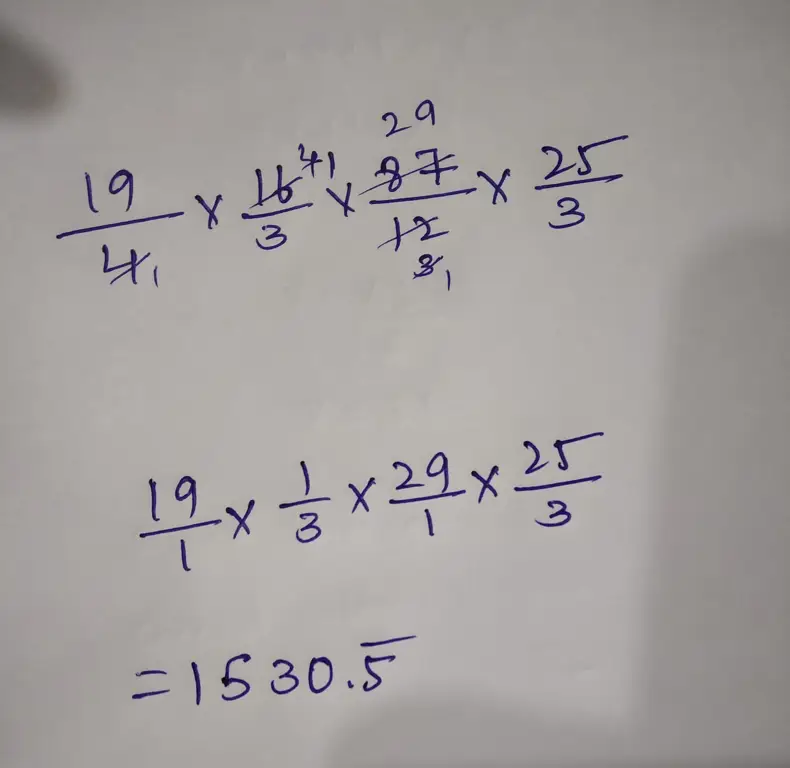 19/4̶ 1 × 1̶6̶ 4̶ 1/3 × 29 8̶7̶/1̶2̶ 3̶ 1 × 25/3
19/1 × 1/3 × 29/1 × 25/3
= 1530.5̅